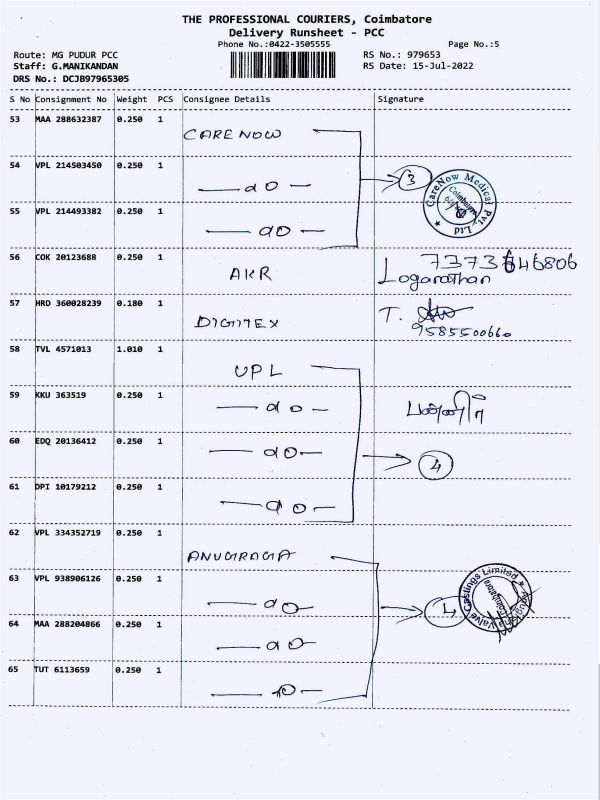 THE PROFESSIONAL COURIERS, Coimbatore
Delivery Runsheet - PCC
Phone No.:0422-3505555 Page No.:5
Route: MG PUDUR PCC RS No.: 979653
Staff: G.MANIKANDAN RS Date: 15-Jul-2022
DRS No.: DCJB97965305
S No Consignment No Weight PCS Consignee Details Signature
53 MAA 288632387 0.250 1 CARE NOW
54 VPL 214503450 0.250 1 — do — 3 CareNow Medical Pvt Ltd Coimbatore
55 VPL 214493382 0.250 1 — do —
56 COK 20123688 0.250 1 AKR 7373646806 Loganathan
57 HRD 360028239 0.180 1 DIGITEX T. 9585500660
58 TVL 4571013 1.010 1 UPL
59 KKU 363519 0.250 1 — do —
60 EDQ 20136412 0.250 1 — do — 4
61 DPI 10179212 0.250 1 — do —
62 VPL 334352719 0.250 1 ANUGRAGA
63 VPL 938906126 0.250 1 — do — 4 Valve Castings Limited Coimbatore
64 MAA 288204866 0.250 1 — do —
65 TUT 6113659 0.250 1 — do —